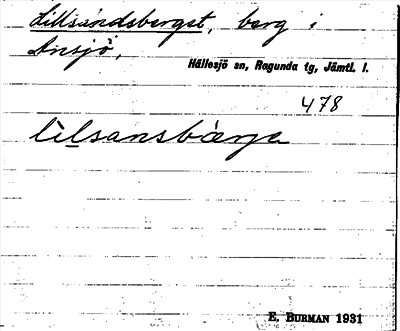 Lillsåndsberget, berg i
Ansjö,
Hällesjö sn, Ragunda tg, Jämtl. l.
478
lìlsansbàrga
E. BURMAN 1931